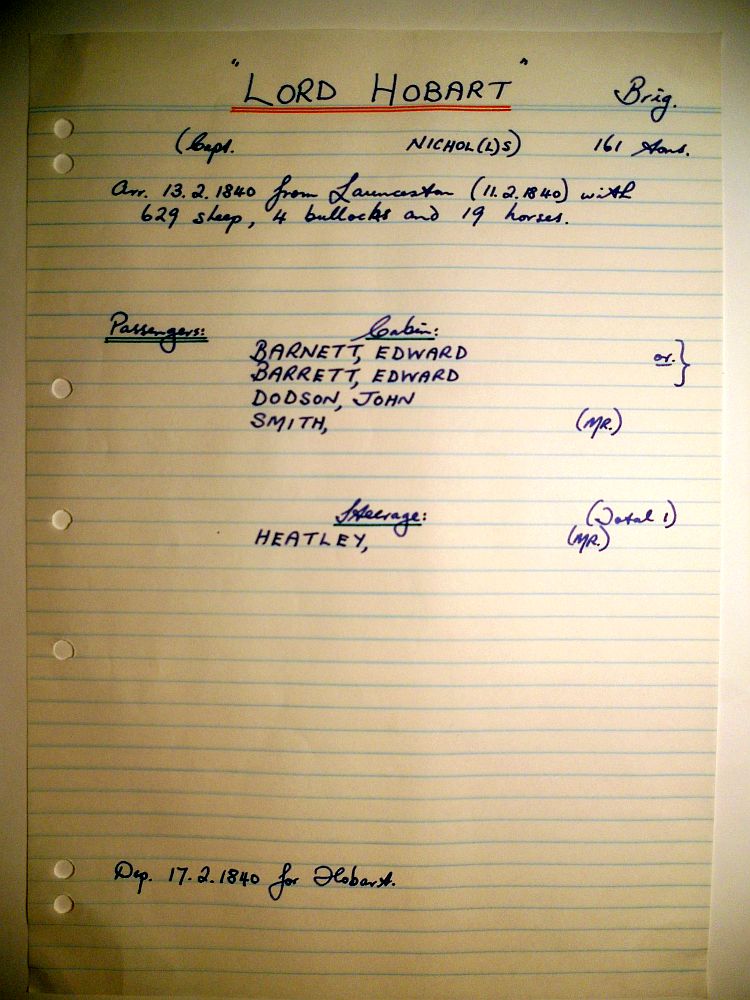 "LORD HOBART" Brig.
(Capt. NICHOL(L)S) 161 tons.
Arr. 13.2.1840 from Launceston (11.2.1840) with
629 sheep, 4 bullocks and 19 horses.
Passengers: Cabin:
BARNETT, EDWARD or. }
BARRETT, EDWARD
DODSON, JOHN
SMITH, (MR.)
Steerage: (Total 1)
HEATLEY, (MR.)
Dep. 17.2.1840 for Hobart.